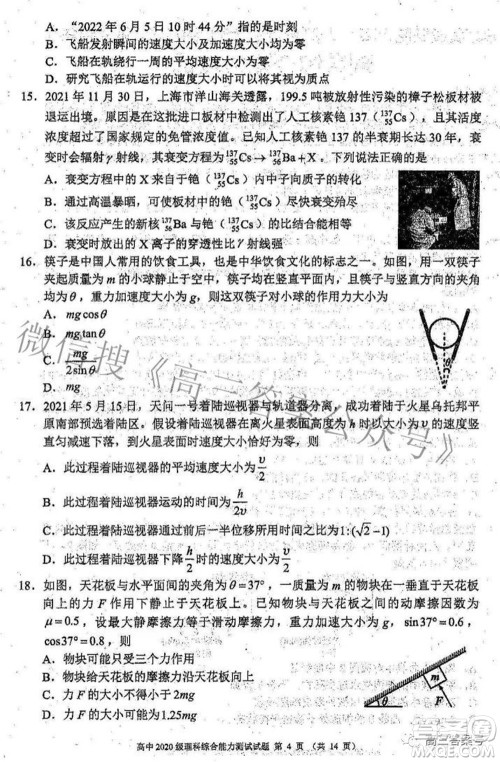 A．“2022 年 6 月 5 日 10 时 44 分”指的是时刻
B．飞船发射瞬间的速度大小及加速度大小均为零
C．飞船在轨绕行一周的平均速度大小不为零
D．研究飞船在轨运行的速度大小时可以将其视为质点
15．2021 年 11 月 30 日，上海市洋山海关透露，199.5 吨被放射性污染的樟子松板材被
退运出境。原因是在这批进口板材中检测出了人工核素铯 137（¹³⁷₅₅Cs），且其活度
浓度超过了国家规定的免管浓度值。已知人工核素铯 137 的半衰期长达 30 年，衰
变时会辐射 γ 射线，其衰变方程为 ¹³⁷₅₅Cs→¹³⁷₅₆Ba＋X。下列说法正确的是
A．衰变方程中的 X 来自于铯（¹³⁷₅₅Cs）内中子向质子的转化
B．通过高温暴晒，可使板材中的铯（¹³⁷₅₅Cs）尽快衰变殆尽
C．该反应产生的新核 ¹³⁷₅₆Ba 与铯（¹³⁷₅₅Cs）的比结合能相等
D．衰变时放出的 X 离子的穿透性比 γ 射线强
16．筷子是中国人常用的饮食工具，也是中华饮食文化的标志之一。如图，用一双筷子
夹起质量为 m 的小球静止于空中，筷子均在竖直平面内，且筷子与竖直方向的夹角
均为 θ，重力加速度大小为 g，则这双筷子对小球的作用力大小为
A．mg cosθ
B．mg tanθ
C．mg/2sinθ
D．mg
17．2021 年 5 月 15 日，天问一号着陆巡视器与轨道器分离，成功着陆于火星乌托邦平
原南部预选着陆区。假设着陆巡视器在离火星表面高度为 h 时以大小为 v 的速度竖
直匀减速下落，到火星表面时速度大小恰好为零，则
A．此过程着陆巡视器的平均速度大小为 v/2
B．此过程着陆巡视器运动的时间为 h/2v
C．此过程着陆巡视器通过前后一半位移所用时间之比为 1:(√2−1)
D．此过程着陆巡视器下降 h/2 时的速度大小为 v/2
18．如图，天花板与水平面间的夹角为 θ=37°，一质量为 m 的物块在一垂直于天花板
向上的力 F 作用下静止于天花板上。已知物块与天花板之间的动摩擦因数为
μ=0.5，设最大静摩擦力等于滑动摩擦力，重力加速度大小为 g，sin37°=0.6，
cos37°=0.8，则
A．物块可能只受三个力作用
B．物块给天花板的摩擦力沿天花板向上
C．力 F 的大小不得小于 2mg
D．力 F 的大小可能为 1.25mg
θ
m
F
高中 2020 级理科综合能力测试试题 第 4 页（共 14 页）
微信搜《高三答案公众号》
高三答案号